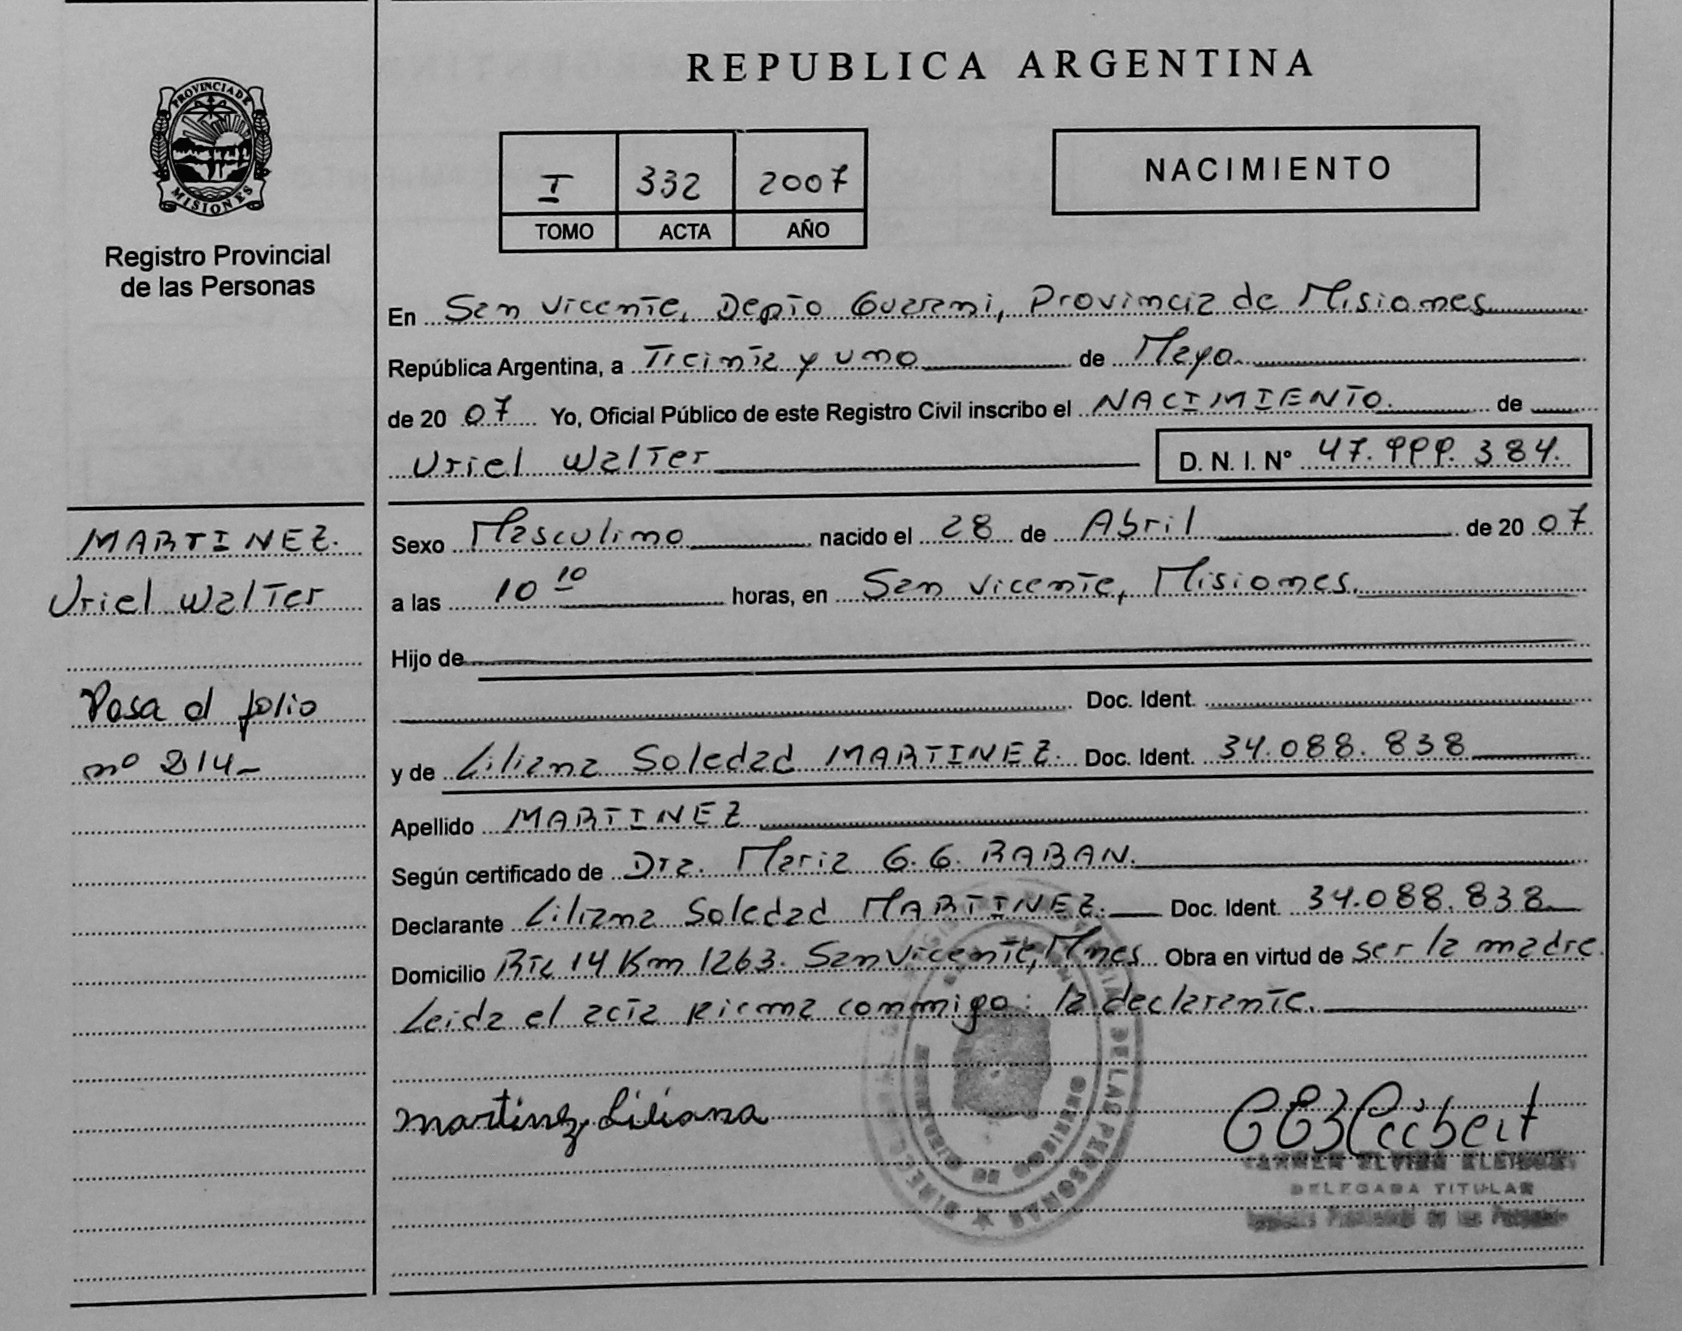 REPUBLICA ARGENTINA
PROVINCIA DE
MISIONES
Registro Provincial
de las Personas
I 332 2007
TOMO ACTA AÑO
NACIMIENTO
En San Vicente, Depto Guarani, Provincia de Misiones
República Argentina, a Treinta y uno de Mayo
de 2007 Yo, Oficial Público de este Registro Civil inscribo el NACIMIENTO de
Uriel Walter D. N. I. N° 47.999.384.
MARTINEZ.
Uriel Walter
Pasa al folio
nº 214-
Sexo Masculino nacido el 28 de Abril de 2007
a las 10 10 horas, en San Vicente, Misiones.
Hijo de
Doc. Ident.
y de Liliana Soledad MARTINEZ. Doc. Ident. 34.088.838
Apellido MARTINEZ
Según certificado de Dra. Maria G.G. RABAN.
Declarante Liliana Soledad MARTINEZ. Doc. Ident. 34.088.838
Domicilio Rta 14 Km 1263. San Vicente, Mnes Obra en virtud de ser la madre.
Leida el acta firma conmigo: la declarante.
Martinez Liliana
DE LAS PERSONAS
DELEGADA TITULAR